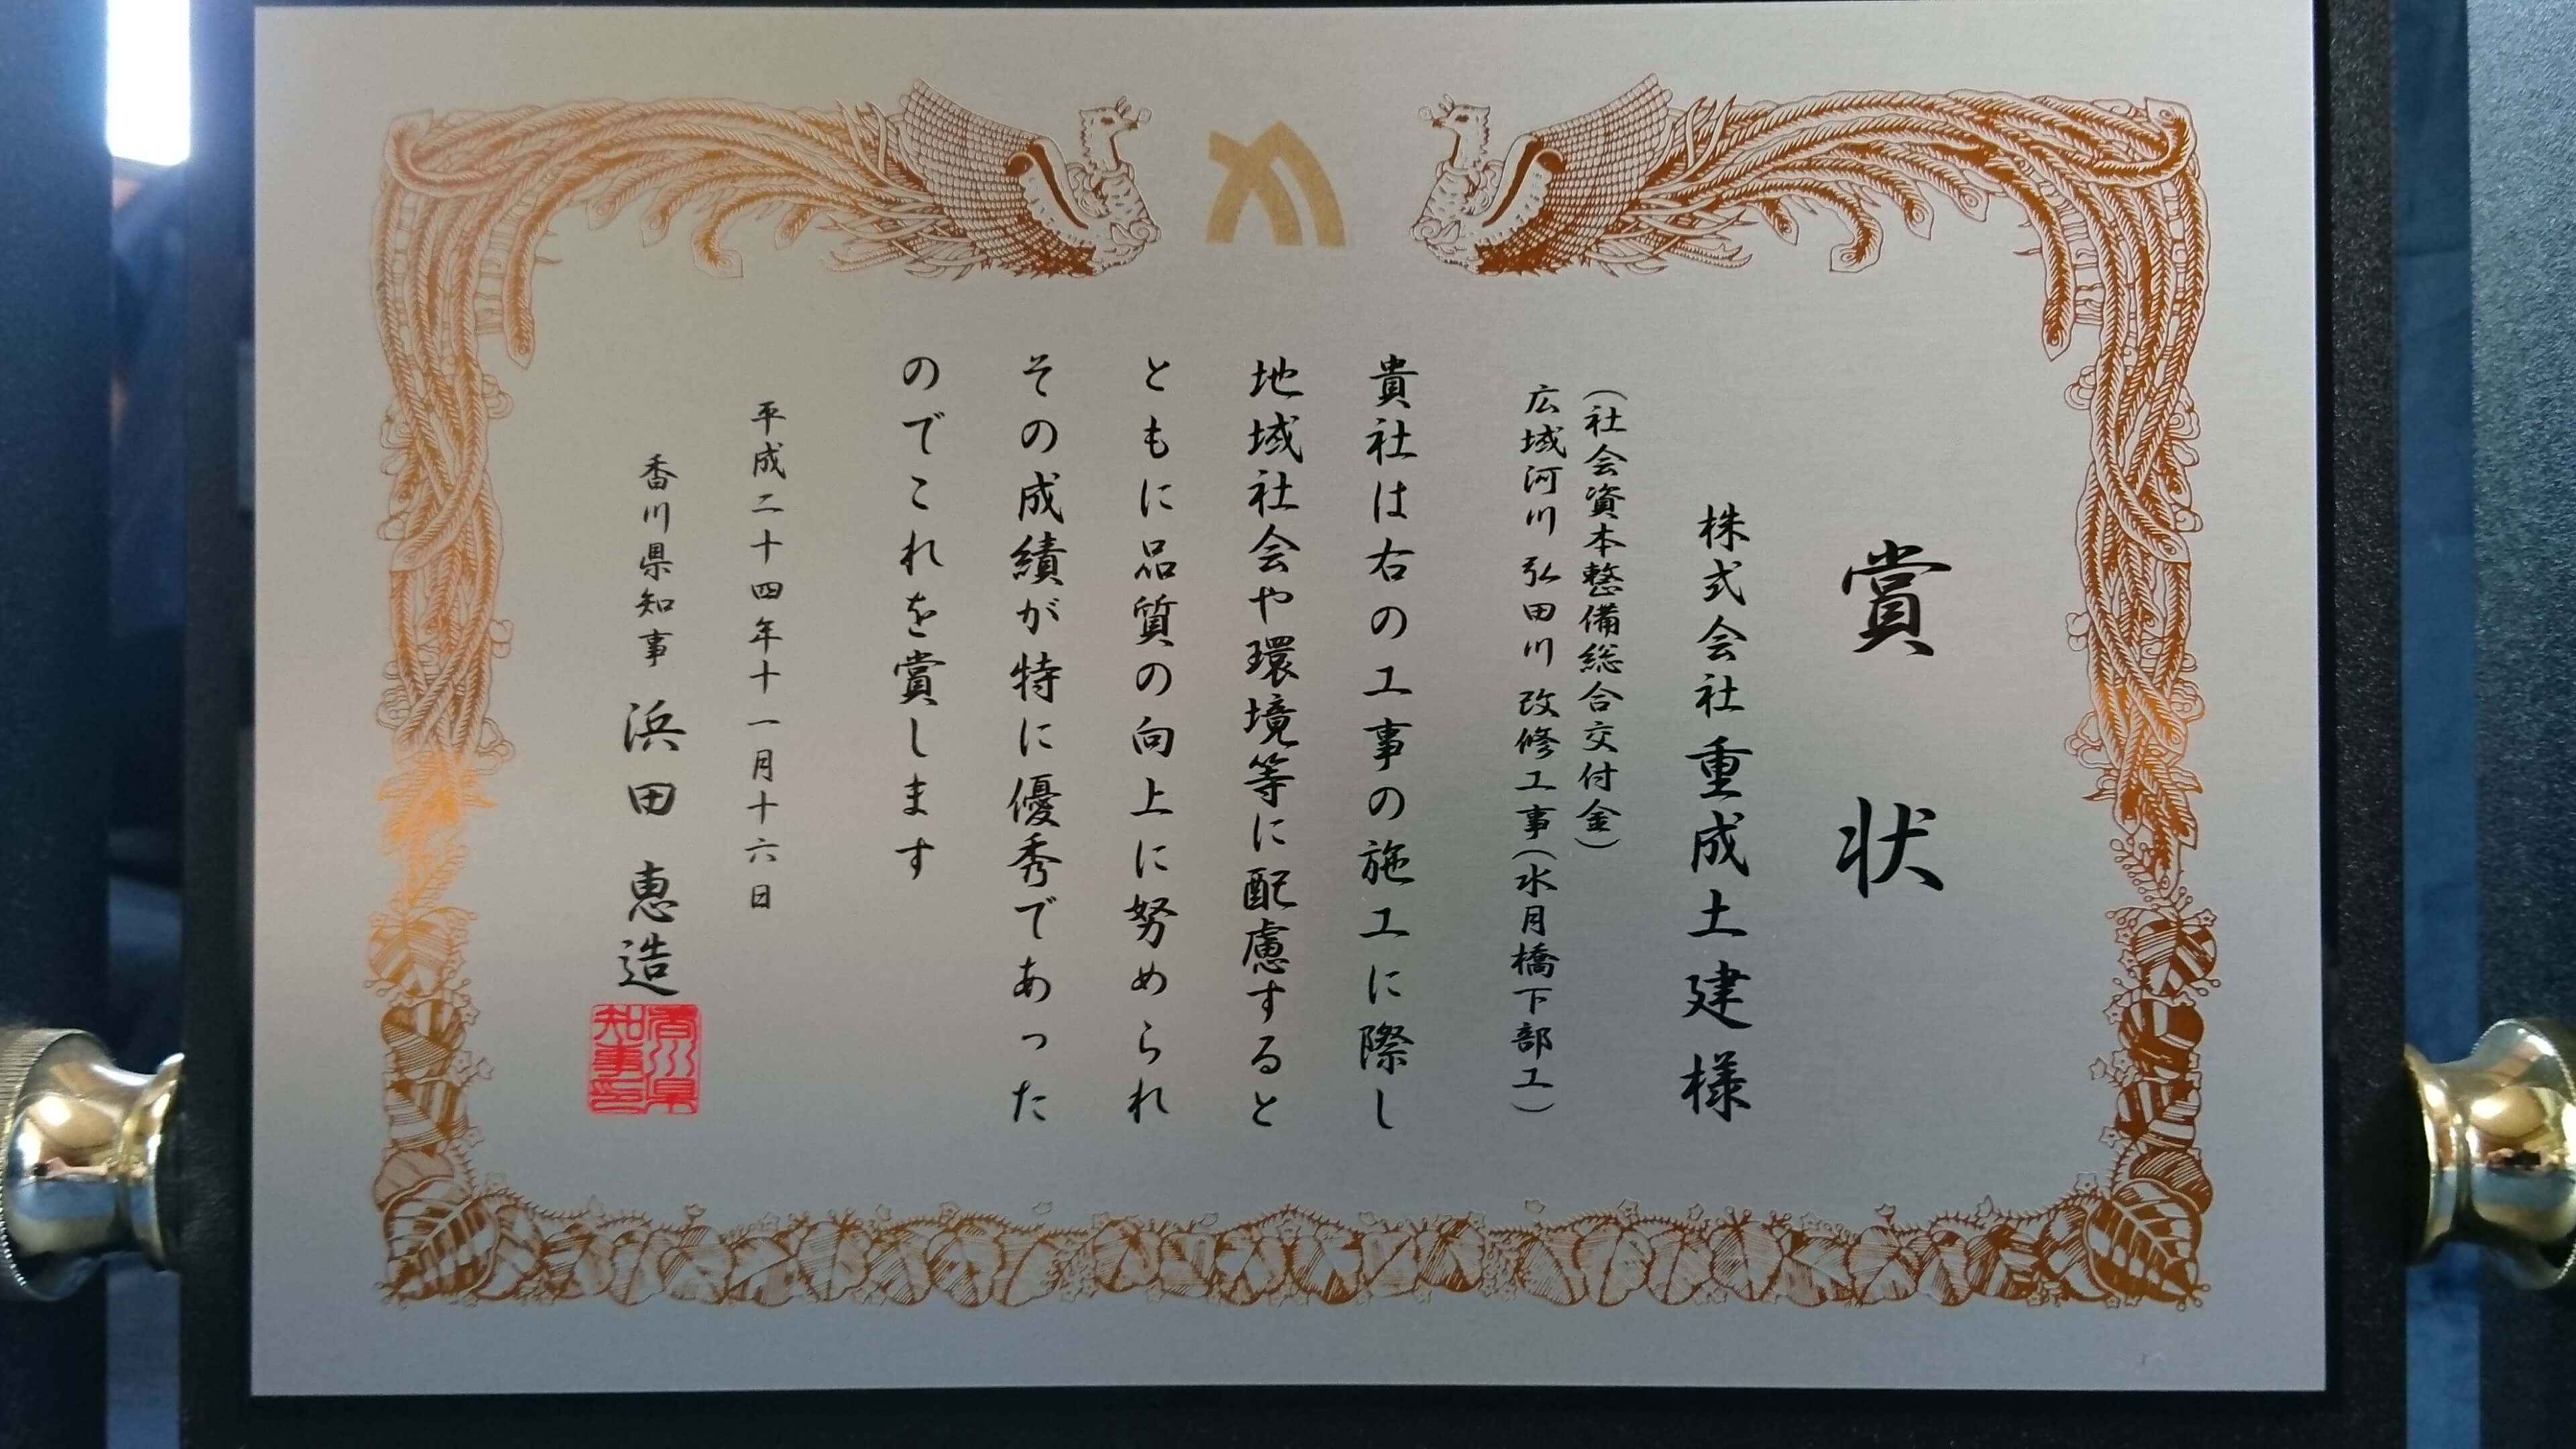 賞状
株式会社重成土建様
（社会資本整備総合交付金）
広域河川 弘田川 改修工事（水月橋下部工）
貴社は右の工事の施工に際し
地域社会や環境等に配慮すると
ともに品質の向上に努められ
その成績が特に優秀であった
のでこれを賞します
平成二十四年十一月十六日
香川県知事 浜田恵造
香川県
知事印